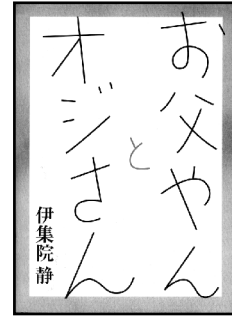 お父やんと
オジさん
伊集院 静